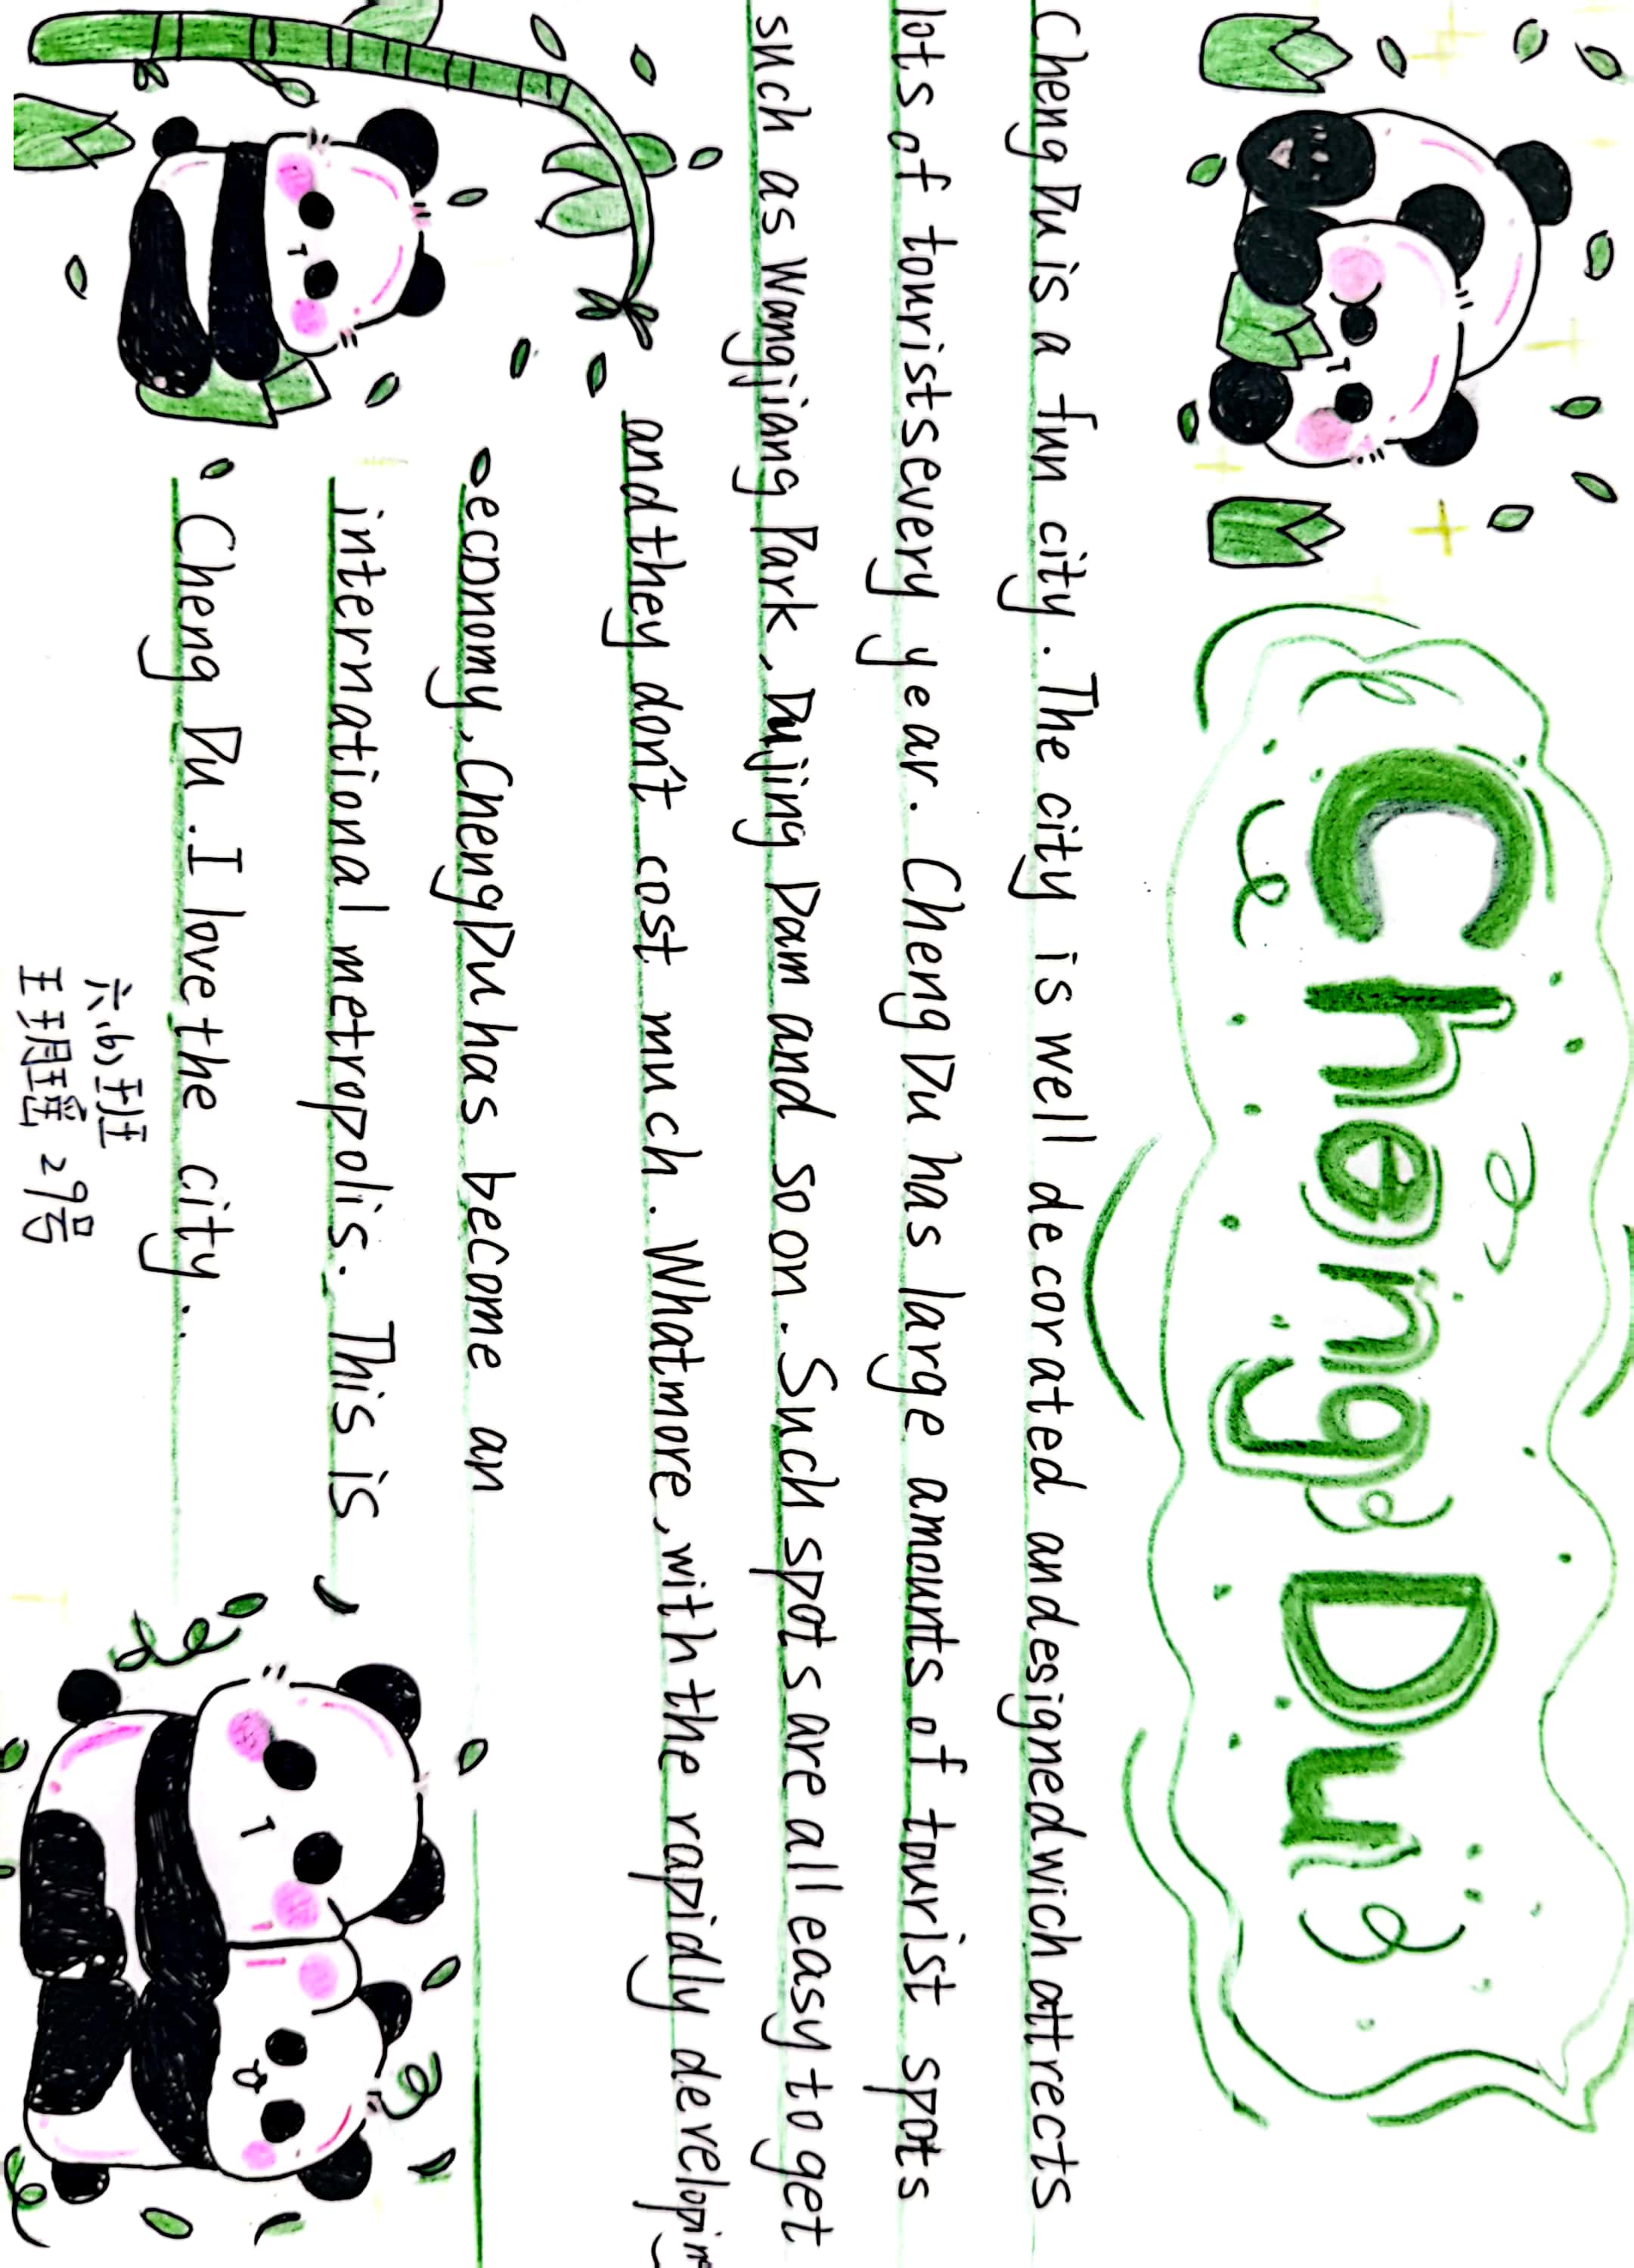 Cheng Du
Cheng Du is a fun city. The city is well decorated and designed wich attrects
lots of tourists every year. Cheng Du has large amounts of tourist spots
such as Wangjiang Park, Dujing Dam and so on. Such spots are all easy to get
and they don't cost much. What more, with the rapidly developing
economy, Cheng Du has become an
international metropolis. This is
Cheng Du. I love the city.
六(6)班
王玥瑶 29号